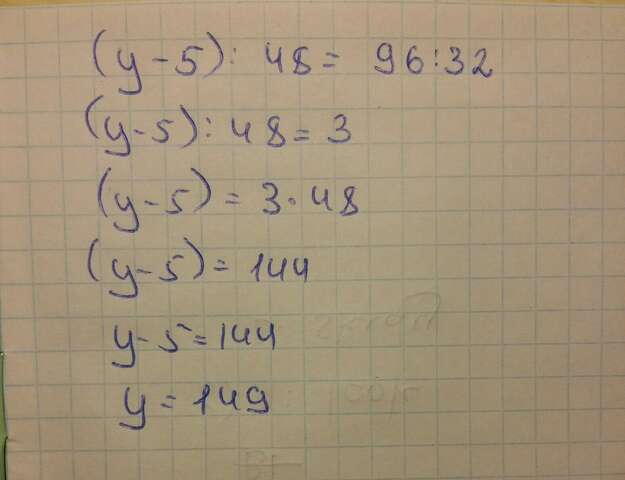 (y-5): 48= 96:32
(y-5):48=3
(y-5)=3·48
(y-5)=144
y-5=144
y=149